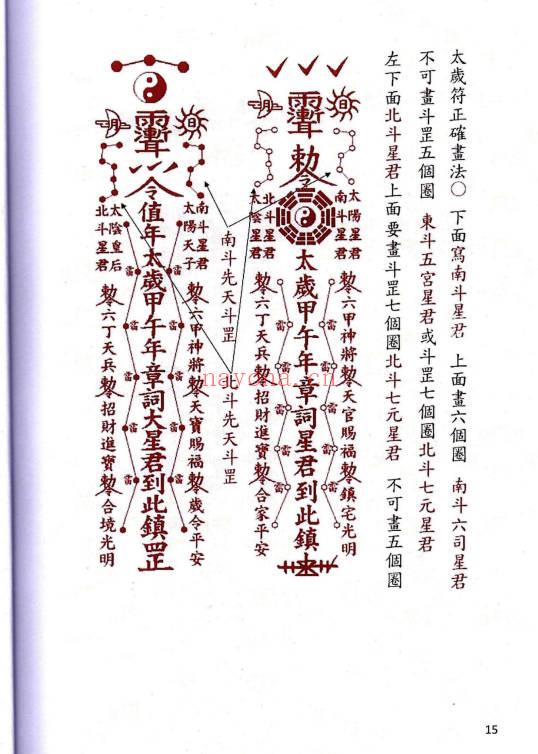 太歲符正確畫法○ 下面寫南斗星君 上面畫六個圈 南斗六司星君
不可畫斗罡五個圈 東斗五宮星君或斗罡七個圈北斗七元星君
左下面北斗星君上面要畫斗罡七個圈北斗七元星君 不可畫五個圈
日
月
勅令
太陽星君
南斗星君
北斗星君
太陰星君
太歲甲午年章詞星君到此鎮
勅六甲神將勅天官賜福勅鎮宅光明
勅六丁天兵勅招財進寶勅合家平安
雷 雷 雷 雷 雷 雷 雷 雷 雷 雷
南斗先天斗罡
北斗先天斗罡
日
月
令
南斗星君
太陽天子
太陰皇后
北斗星君
值年太歲甲午年章詞大星君到此鎮罡
勅六甲神將勅天寶賜福勅歲令平安
勅六丁天兵勅招財進寶勅合境光明
雷 雷 雷 雷 雷 雷 雷 雷
nayona.cn
15